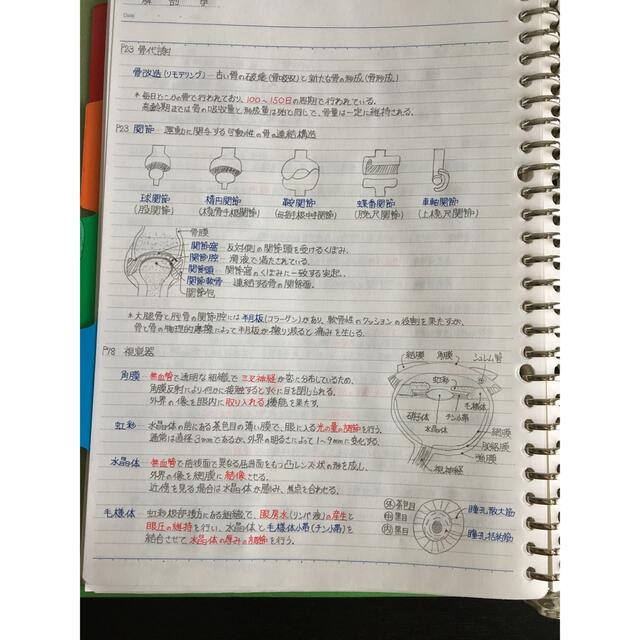 解剖学
Date
P23 骨代謝
骨改造(リモデリング)― 古い骨の破壊(骨吸収)と新たな骨の形成(骨形成)
*毎日どこかの骨で行われており、100〜150日の周期で行われている。
高齢期までは骨の吸収量と形成量は殆ど同じで、骨量は一定に維持される。
P23 関節 ― 運動に関与する可動性の骨の連結構造
球関節 楕円関節 鞍関節 蝶番関節 車軸関節
(股関節) (橈骨手根関節) (母指手根中手関節) (腕尺関節) (上橈尺関節)
骨膜
関節窩 反対側の関節頭を受けるくぼみ。
関節腔 滑液で満たされている。
関節頭 関節窩のくぼみに一致する突起。
関節軟骨 連結する骨の関節面。
関節包
*大腿骨と脛骨の関節腔には半月板(コラーゲン)があり、軟骨性のクッションの役割を果たすが、
骨と骨の物理的摩擦によって半月板が擦り減ると痛みを生じる。
P78 視覚器
角膜 ― 無血管で透明な組織で三叉神経が密に分布しているため、
角膜反射により何かに接触するとすぐに目を閉じられる。
外界の像を眼内に取り入れる機能を果たす。
虹彩 ― 水晶体の前にある茶色目の薄い膜で、眼に入る光の量の調節を行う。
通常は直径3mmであるが、外界の明るさによって1〜9mmに変化する。
水晶体 ― 無血管で前後面で異なる屈曲面をもつ凸レンズ状の形を成し、
外界の像を網膜に結像させる。
近傍を見る場合は水晶体が厚み、焦点を合わせる。
毛様体 ― 虹彩根部後方にある組織で、眼房水(リンパ液)の産生と
眼圧の維持を行い、水晶体と毛様体小帯(チン小帯)を
結合させて水晶体の厚みの調節を行う。
結膜 角膜 シュレム管
虹彩
毛様体
硝子体 チン小帯
水晶体
網膜
脈絡膜
強膜
視神経
茶目
黒目
黒目
瞳孔散大筋
瞳孔括約筋